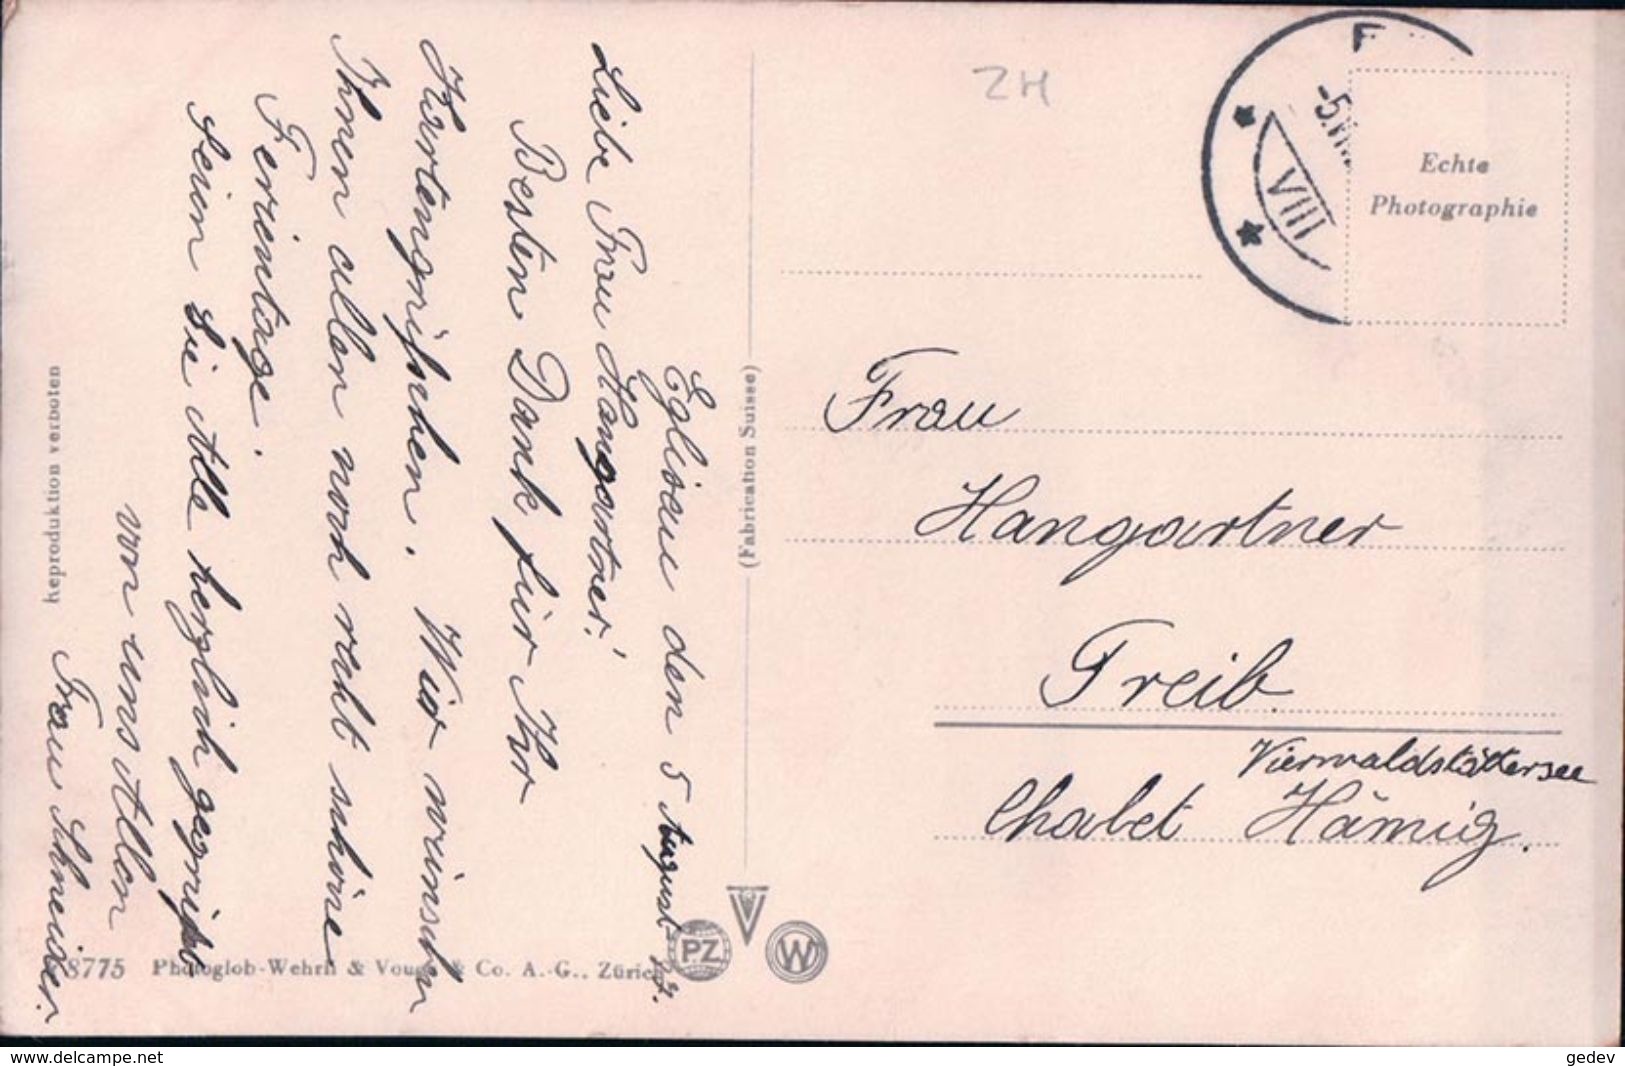 Eglisau den 5 August
Liebe Frau Hangartner!
Besten Dank für Ihr
Kartengrüsschen. Wir wünschen
Ihnen allen noch recht schöne
Ferientage.
Seien Sie Alle herzlich gegrüsst
von uns Allen
Frau Schneider.
Reproduktion verboten
8775 Photoglob-Wehrli & Vouga & Co. A.-G., Zürich
(Fabrication Suisse)
PZ
V
W
ZH
F
-5.VIII
VIII
Echte
Photographie
Frau
Hangartner
Treib.
Vierwaldstättersee
Chalet Hämig.
www.delcampe.net
gedev